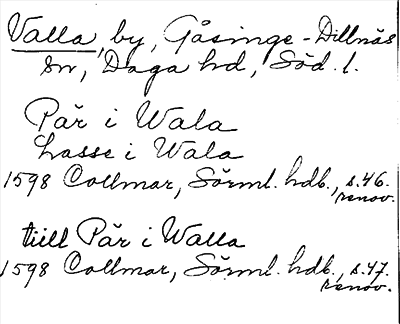 Valla, by, Gåsinge-Dillnäs
sn, Daga hd, Söd. l.
Pär i Wala
Lasse i Wala
1598 Collmar, Sörml. hdb., s.46.
renov.
tiill Pär i Walla
1598 Collmar, Sörml. hdb., s.47.
renov.